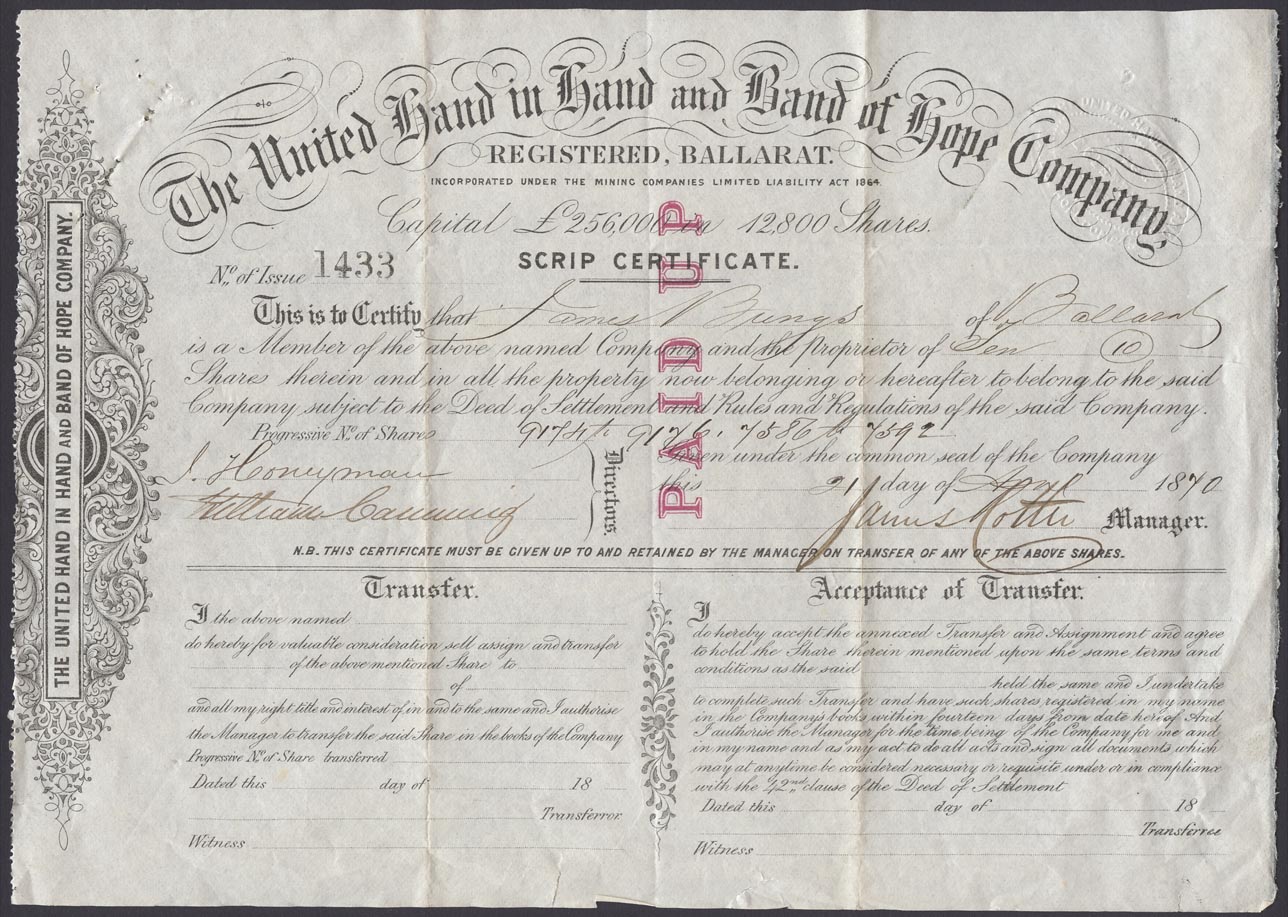 The United Hand in Hand and Band of Hope Company
REGISTERED, BALLARAT.
INCORPORATED UNDER THE MINING COMPANIES LIMITED LIABILITY ACT 1864.
Capital £256,000 in 12,800 Shares.
SCRIP CERTIFICATE.
No. of Issue 1433
This is to Certify that James of Ballarat
is a Member of the above named Company and the Proprietor of Ten (10)
Shares therein and in all the property now belonging or hereafter to belong to the said
Company subject to the Deed of Settlement and Rules and Regulations of the said Company.
Progressive No. of Shares 9174 to 9176. 7586 to 7592
Given under the common seal of the Company
J. Honeyman
this 21 day of April 1870
William Canning
Directors.
James Manager.
PAID UP
N.B. THIS CERTIFICATE MUST BE GIVEN UP TO AND RETAINED BY THE MANAGER ON TRANSFER OF ANY OF THE ABOVE SHARES.
THE UNITED HAND IN HAND AND BAND OF HOPE COMPANY.
Transfer.
I the above named
do hereby for valuable consideration sell assign and transfer
of the above mentioned Share to
of
and all my right title and interest of in and to the same and I authorise
the Manager to transfer the said Share in the books of the Company
Progressive No. of Share transferred
Dated this day of 18
Transferror
Witness
Acceptance of Transfer.
I
do hereby accept the annexed Transfer and Assignment and agree
to hold the Share therein mentioned upon the same terms and
conditions as the said
held the same and I undertake
to complete such Transfer and have such shares registered in my name
in the Companys books within fourteen days from date hereof And
I authorise the Manager for the time being of the Company for me and
in my name and as my act to do all acts and sign all documents which
may at any time be considered necessary or requisite under or in compliance
with the 42nd clause of the Deed of Settlement
Dated this day of 18
Transferree
Witness